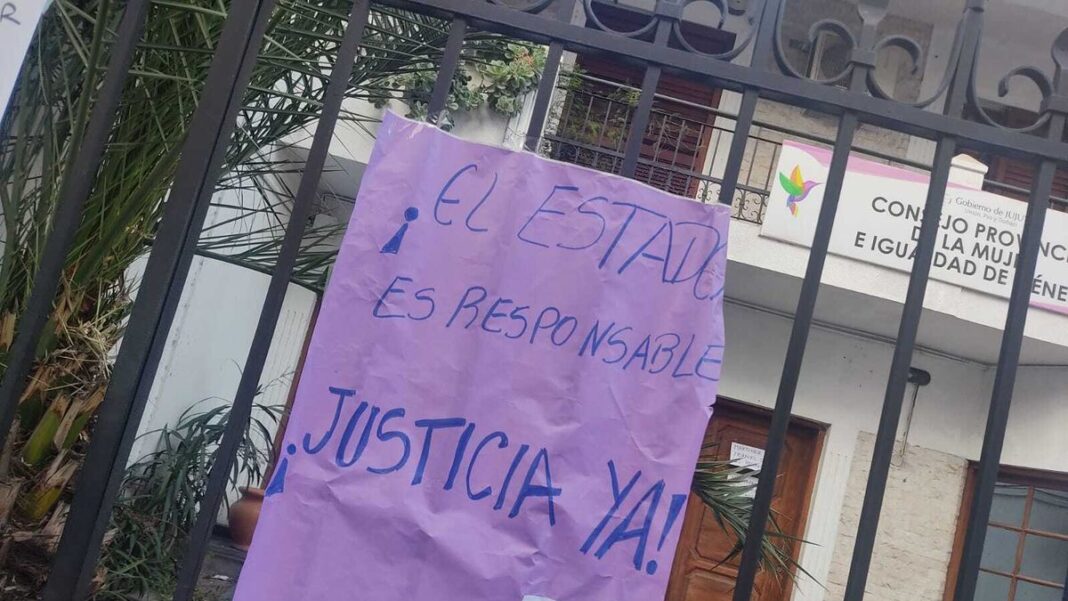 R
¡EL ESTADO
ES RESPONSABLE
¡JUSTICIA YA!
Gobierno de JUJU
CONSEJO PROVINC
DE LA MUJE
E IGUALDAD DE GÉNE